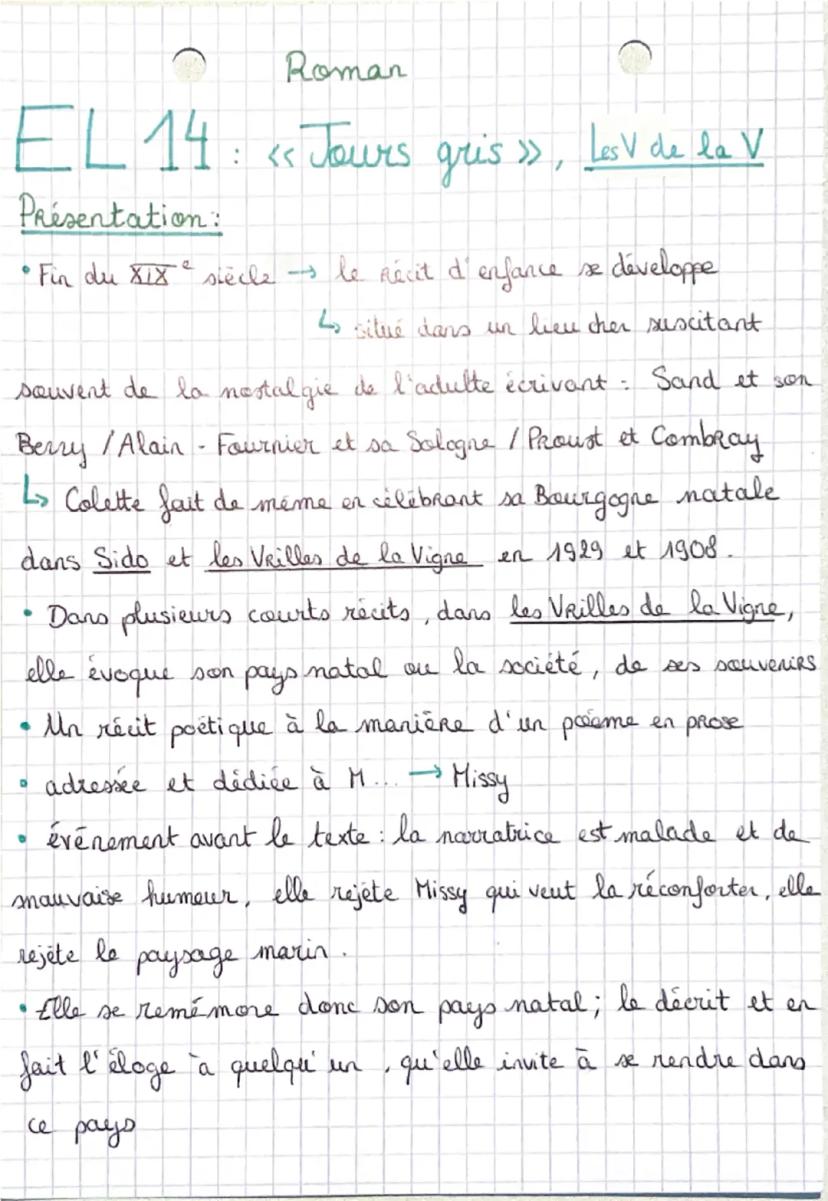 Roman
EL 14 : « Jours gris », Les V de la V
Présentation :
• Fin du XIXe siècle → le récit d'enfance se développe
↳ situé dans un lieu cher suscitant
souvent de la nostalgie de l'adulte écrivant : Sand et son
Berry / Alain - Fournier et sa Sologne / Proust et Combray
↳ Colette fait de même en célébrant sa Bourgogne natale
dans Sido et les Vrilles de la Vigne en 1929 et 1908.
• Dans plusieurs courts récits, dans les Vrilles de la Vigne,
elle évoque son pays natal ou la société, de ses souvenirs
• Un récit poétique à la manière d'un poème en prose
• adressée et dédiée à M... → Missy
• événement avant le texte : la narratrice est malade et de
mauvaise humeur, elle rejète Missy qui veut la réconforter, elle
rejète le paysage marin.
• Elle se remémore donc son pays natal ; le décrit et en
fait l'éloge à quelqu'un, qu'elle invite à se rendre dans
ce pays